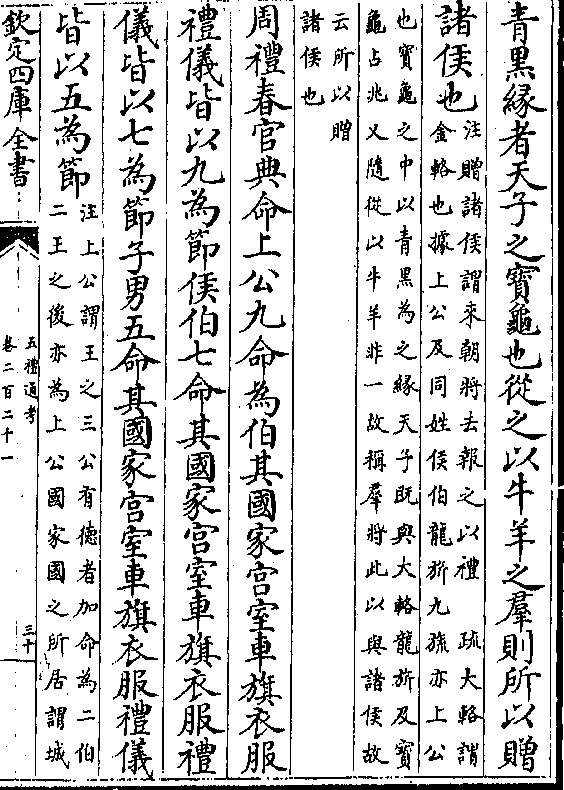 青黒縁者天子之寳龜也從之以牛羊之羣則所以贈
諸侯也
注贈諸侯謂來朝將去報之以禮　疏大輅謂
金輅也據上公及同姓侯伯龍旂九旒亦上公
也寳龜之中以青黒為之縁天子既與大輅龍旂及寳
龜占兆又隨從以牛羊非一故稱羣將此以與諸侯故
云所以贈
諸侯也
周禮春官典命上公九命為伯其國家宫室車旗衣服
禮儀皆以九為節侯伯七命其國家宫室車旗衣服禮
儀皆以七為節子男五命其國家宫室車旗衣服禮儀
皆以五為節
注上公謂王之三公有德者加命為二伯
二王之後亦為上公國家國之所居謂城
欽定四庫全書
五禮通考
卷二百二十一
三十